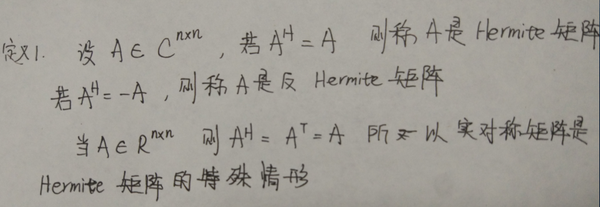 定义1. 设 A ∈ C^{n×n} , 若 A^H = A 则称 A 是 Hermite 矩阵
若 A^H = -A , 则称 A 是反 Hermite 矩阵
当 A ∈ R^{n×n} 则 A^H = A^T = A 所以 实对称矩阵是
Hermite 矩阵的特殊情形